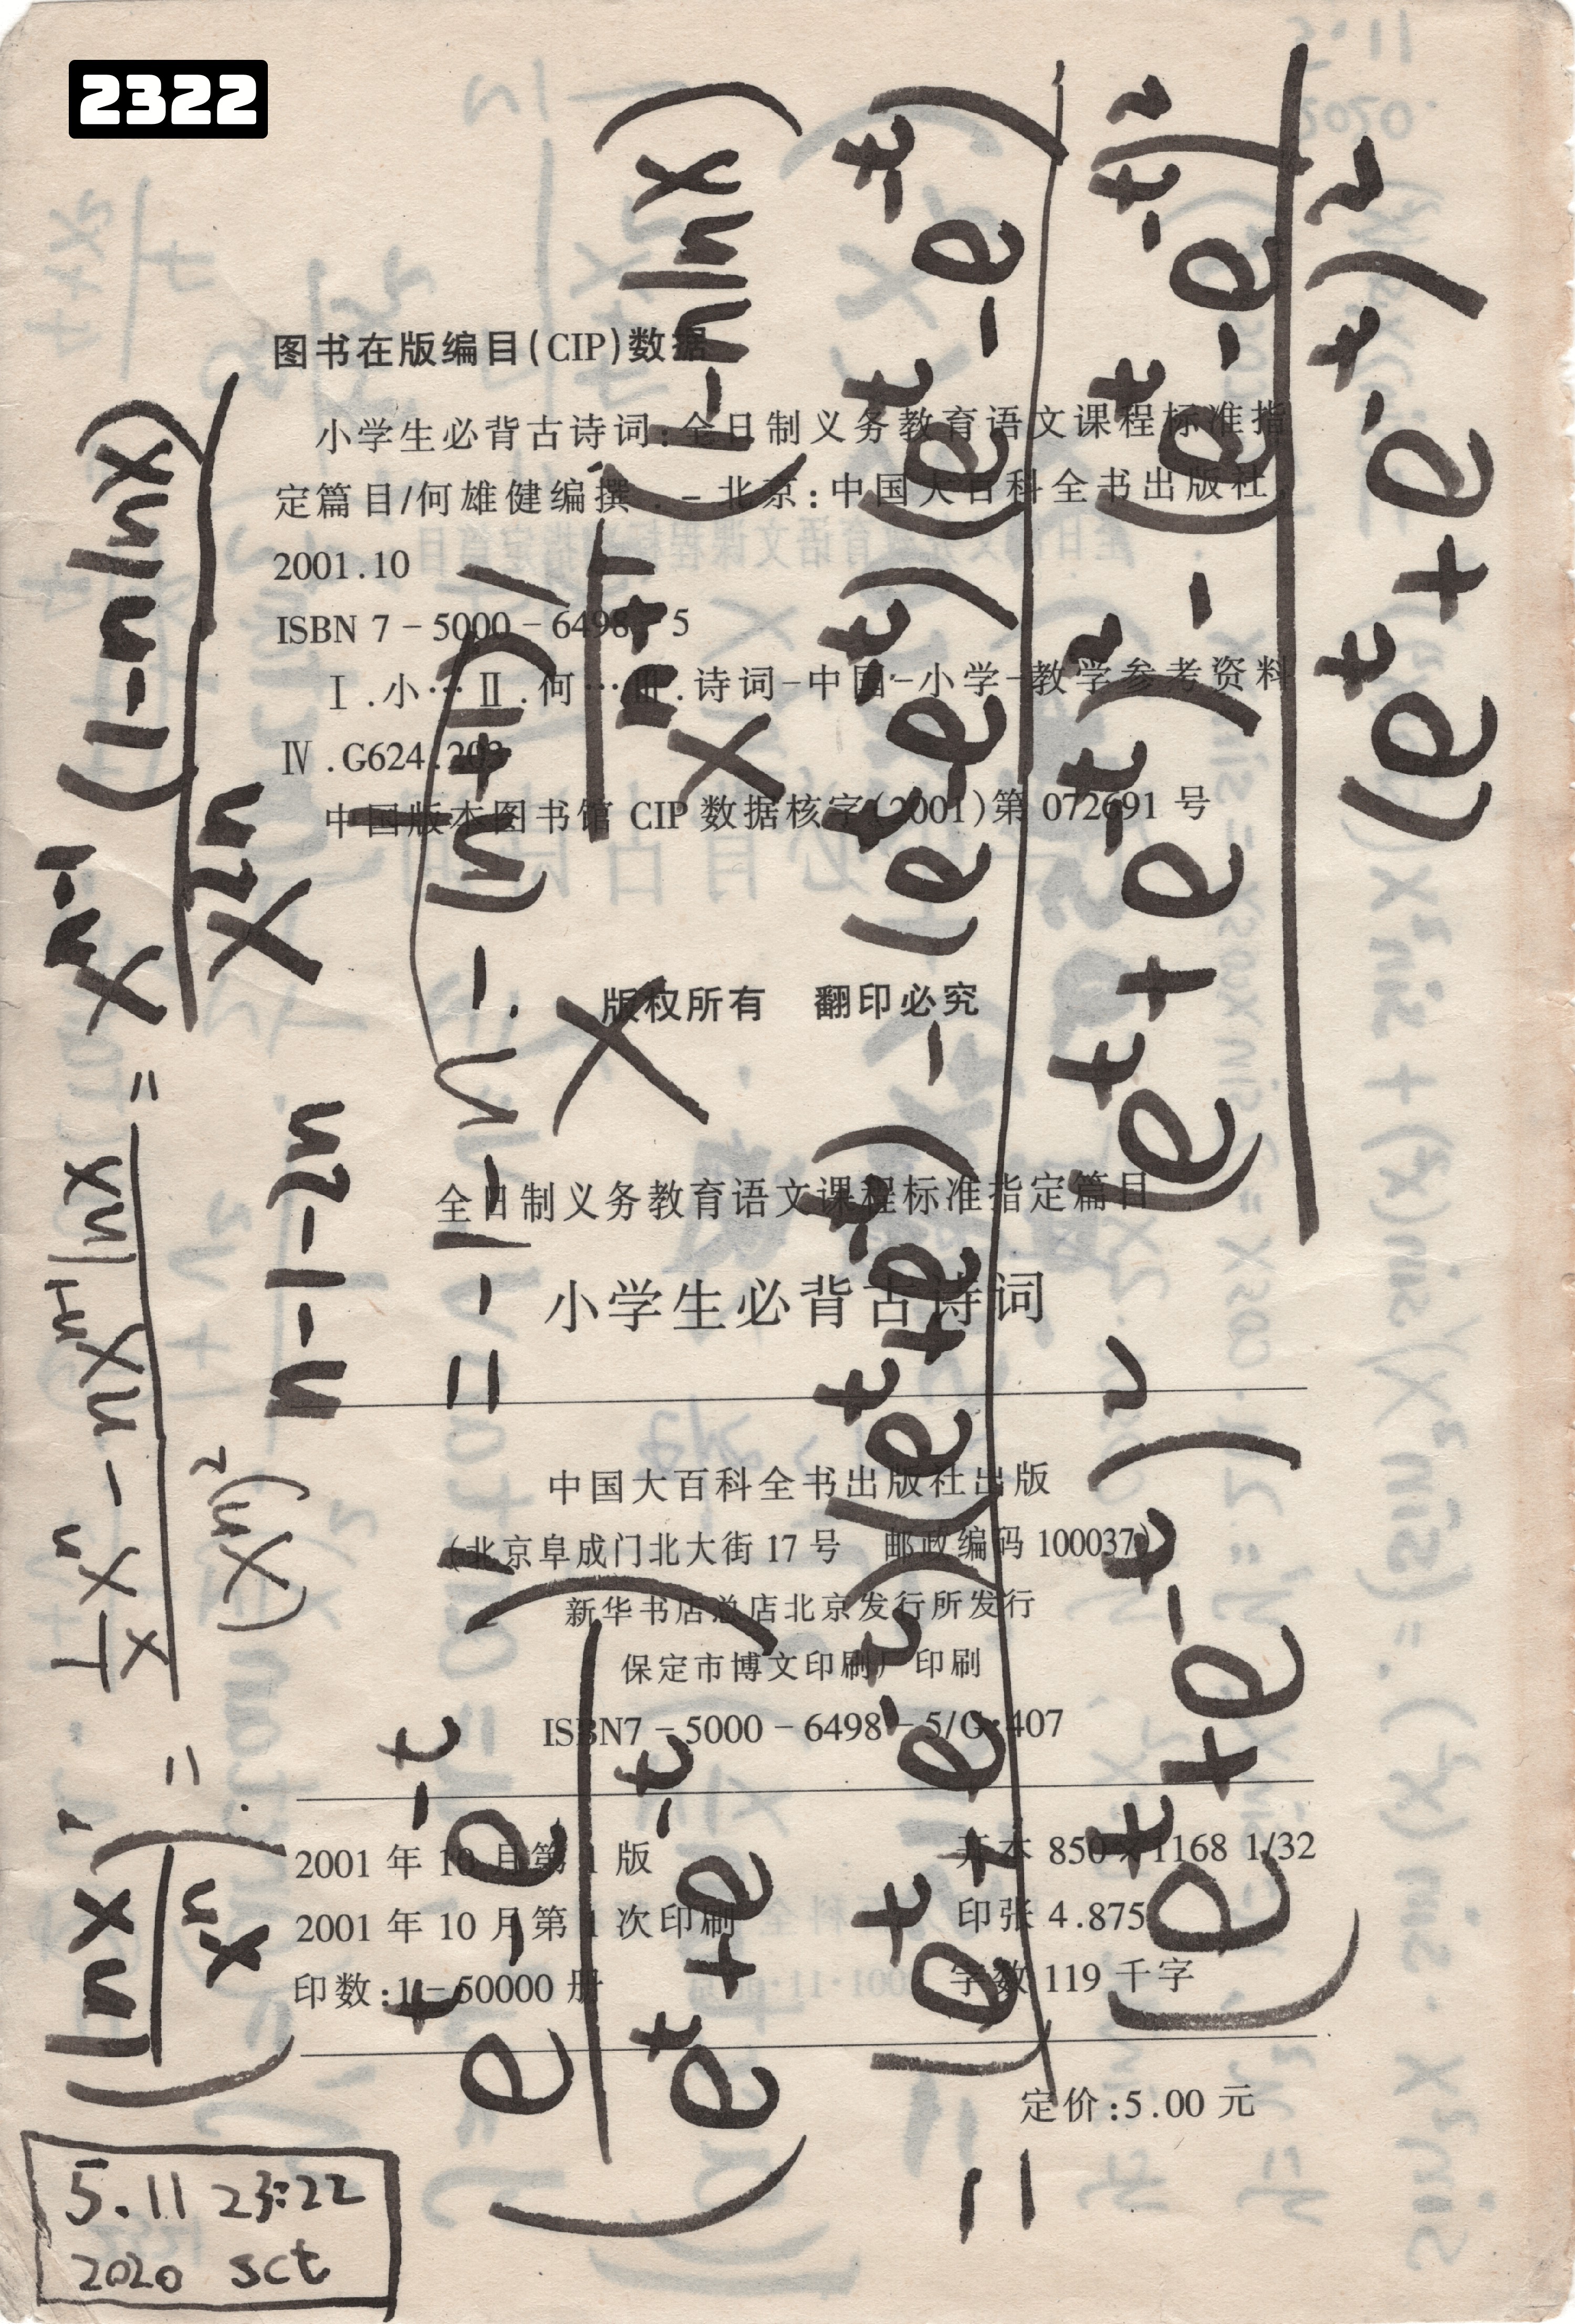 2322
图书在版编目(CIP)数据
小学生必背古诗词:全日制义务教育语文课程标准指
定篇目/何雄健编撰.-北京:中国大百科全书出版社,
2001.10
ISBN 7-5000-6498-5
Ⅰ.小… Ⅱ.何… Ⅲ.诗词-中国-小学-教学参考资料
Ⅳ.G624.203
中国版本图书馆 CIP 数据核字(2001)第 072691 号
版权所有 翻印必究
全日制义务教育语文课程标准指定篇目
小学生必背古诗词
中国大百科全书出版社出版
(北京阜成门北大街 17 号 邮政编码 100037)
新华书店总店北京发行所发行
保定市博文印刷厂印刷
ISBN7-5000-6498-5/G·407
2001 年 10 月第 1 版 开本 850×1168 1/32
2001 年 10 月第 1 次印刷 印张 4.875
印数:1-50000 册 字数 119 千字
定价:5.00 元
(lnx/xⁿ)' = (1/x·xⁿ - nxⁿ⁻¹lnx)/(xⁿ)² = xⁿ⁻¹(1-nlnx)/x²ⁿ
n-1-2n
=-1-n=-(n+1)
x (1-nlnx)/xⁿ⁺¹
((eᵗ-e⁻ᵗ)/(eᵗ+e⁻ᵗ))'
= ((eᵗ-e⁻ᵗ)'(eᵗ+e⁻ᵗ)-(eᵗ-e⁻ᵗ)(eᵗ-e⁻ᵗ))/(eᵗ+e⁻ᵗ)²
((eᵗ+e⁻ᵗ)²-(eᵗ-e⁻ᵗ)²)/(eᵗ+e⁻ᵗ)²
5.11 23:22
2020 sct